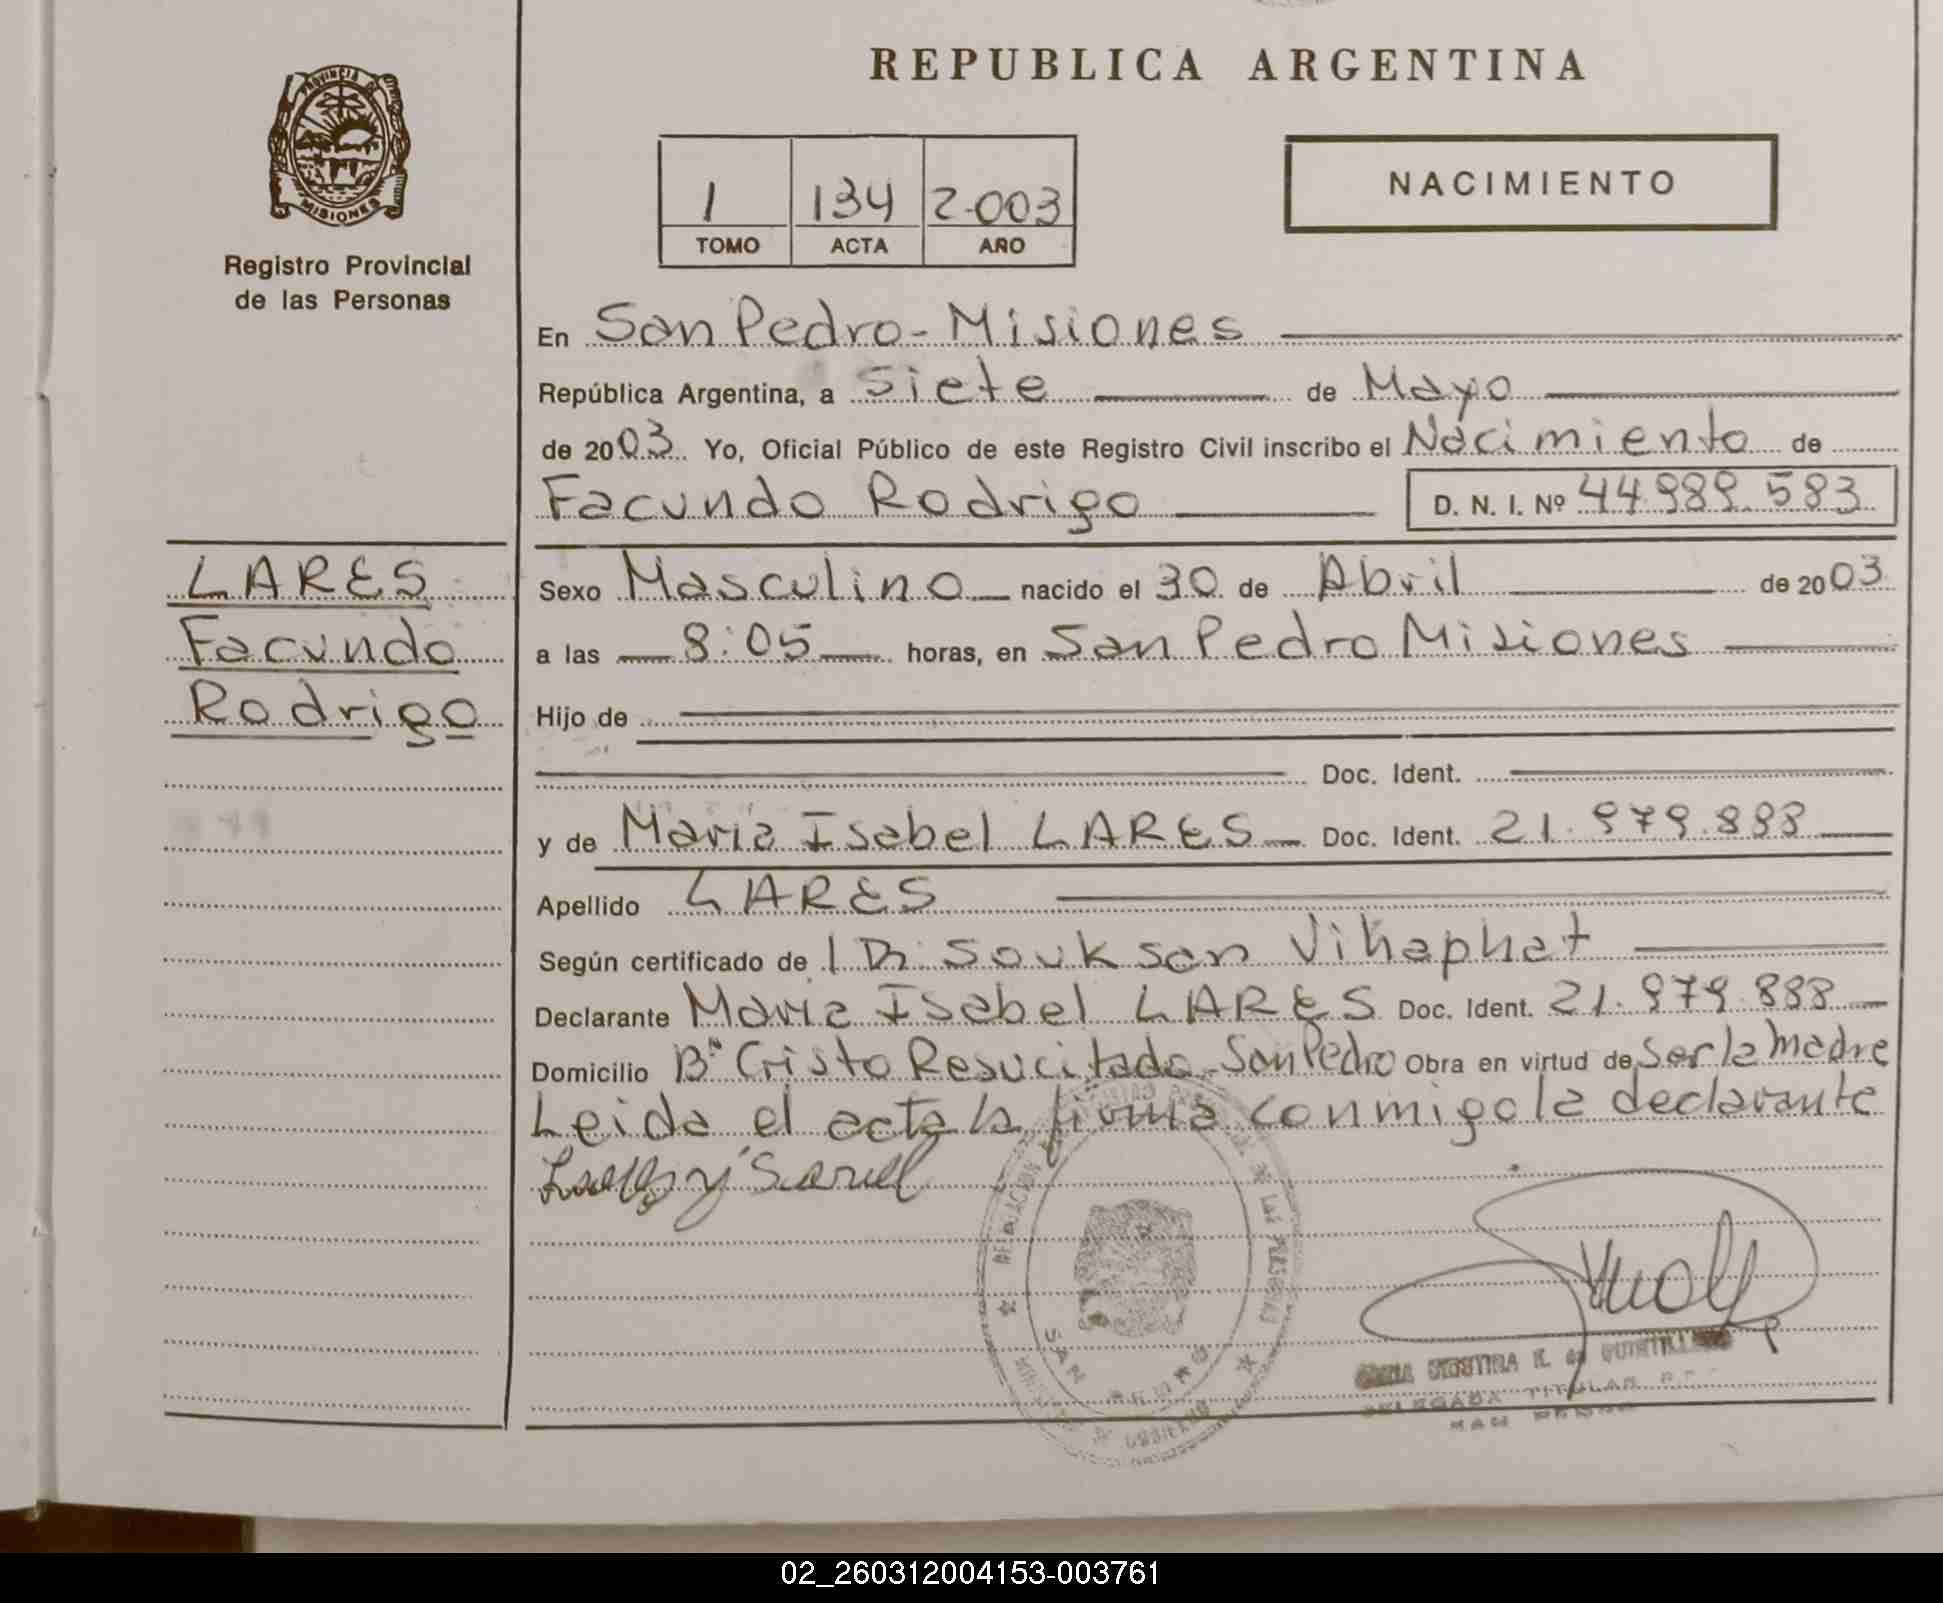 REPUBLICA ARGENTINA
PROVINCIA DE MISIONES
Registro Provincial
de las Personas
1 134 2.003
TOMO ACTA AÑO
NACIMIENTO
En San Pedro - Misiones
República Argentina, a siete de Mayo
de 2003 Yo, Oficial Público de este Registro Civil inscribo el Nacimiento de
Facundo Rodrigo D. N. I. Nº 44.989.583
LARES
Facundo
Rodrigo
Sexo Masculino nacido el 30 de Abril de 2003
a las 8:05 horas, en San Pedro Misiones
Hijo de
Doc. Ident.
y de Maria Isabel LARES Doc. Ident. 21.979.888
Apellido LARES
Según certificado de l Dr. Souksan Vihaphat
Declarante Maria Isabel LARES Doc. Ident. 21.979.888
Domicilio Bº Cristo Resucitado - San Pedro Obra en virtud de ser la madre
Leida el acta la firma conmigo la declarante
DELEGADA TITULAR
SAN PEDRO
02_260312004153-003761